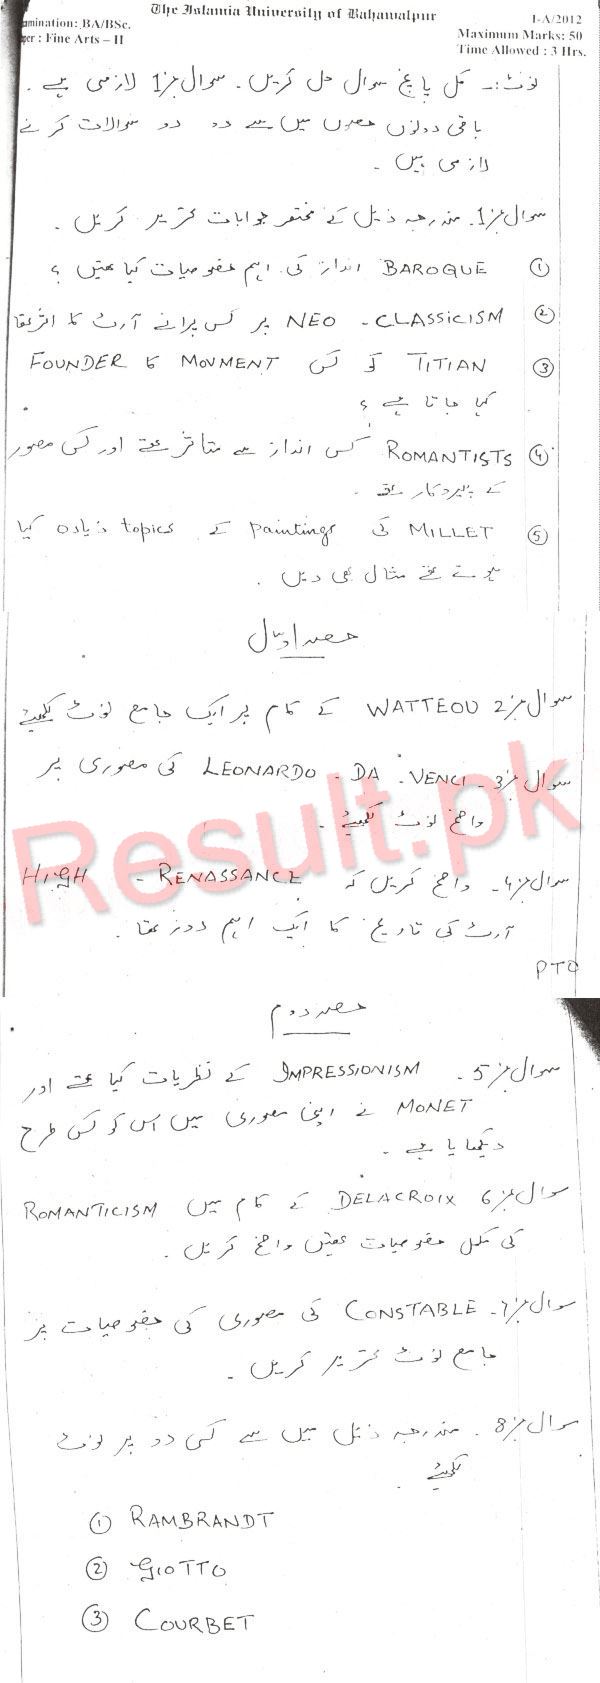 The Islamia University of Bahawalpur
mination: BA/BSc.
1-A/2012
per : Fine Arts – II
Maximum Marks: 50
Time Allowed : 3 Hrs.
نوٹ:۔ کل پانچ سوال حل کریں۔ سوال نمبر 1 لازمی ہے۔
باقی دونوں حصوں میں سے دو دو سوالات کرنے
لازمی ہیں۔
سوال نمبر 1۔ مندرجہ ذیل کے مختصر جوابات تحریر کریں۔
① BAROQUE انداز کی اہم خصوصیات کیا تھیں ؟
② NEO - CLASSICISM پر کس پرانے آرٹ کا اثر تھا
③ TITIAN کو کس MOVMENT کا FOUNDER
کہا جاتا ہے ؟
④ ROMANTISTS کس انداز سے متاثر تھے اور کس مصور
کے پیروکار تھے۔
⑤ MILLET کی Paintings کے topics زیادہ کیا
ہوتے تھے مثال بھی دیں۔
حصہ اوّل
سوال نمبر 2 WATTEOU کے کام پر ایک جامع نوٹ لکھیئے
سوال نمبر 3۔ LEONARDO - DA - VENCI کی مصوری پر
واضح نوٹ لکھیئے۔
سوال نمبر 4۔ واضح کریں کہ HIGH - RENASSANCE
آرٹ کی تاریخ کا ایک اہم دور تھا۔
PTO
Result.pk
حصہ دوم
سوال نمبر 5۔ IMPRESSIONISM کے نظریات کیا تھے اور
MONET نے اپنی مصوری میں اس کو کس طرح
دیکھایا ہے۔
سوال نمبر 6 DELACROIX کے کام میں ROMANTICISM
کی مکمل خصوصیات تھیں واضح کریں۔
سوال نمبر 7۔ CONSTABLE کی مصوری کی خصوصیات پر
جامع نوٹ تحریر کریں۔
سوال نمبر 8۔ مندرجہ ذیل میں سے کسی دو پر نوٹ
لکھیئے
① RAMBRANDT
② GIOTTO
③ COURBET